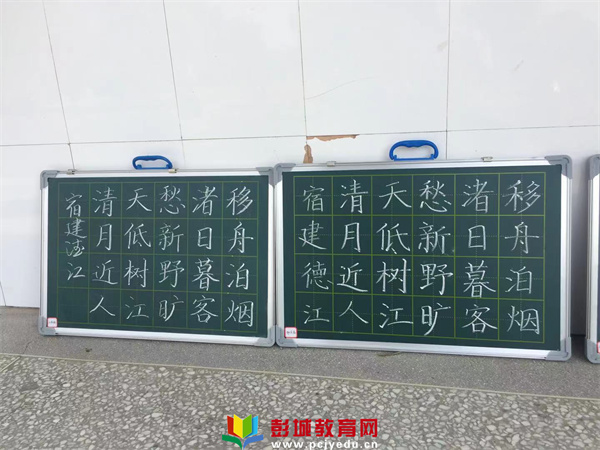 移舟泊烟
渚日暮客
愁新野旷
天低树江
清月近人
宿建德江
移舟泊烟
渚日暮客
愁新野旷
天低树江
清月近人
宿建德江
彭城教育网
www.pcjyedu.cn